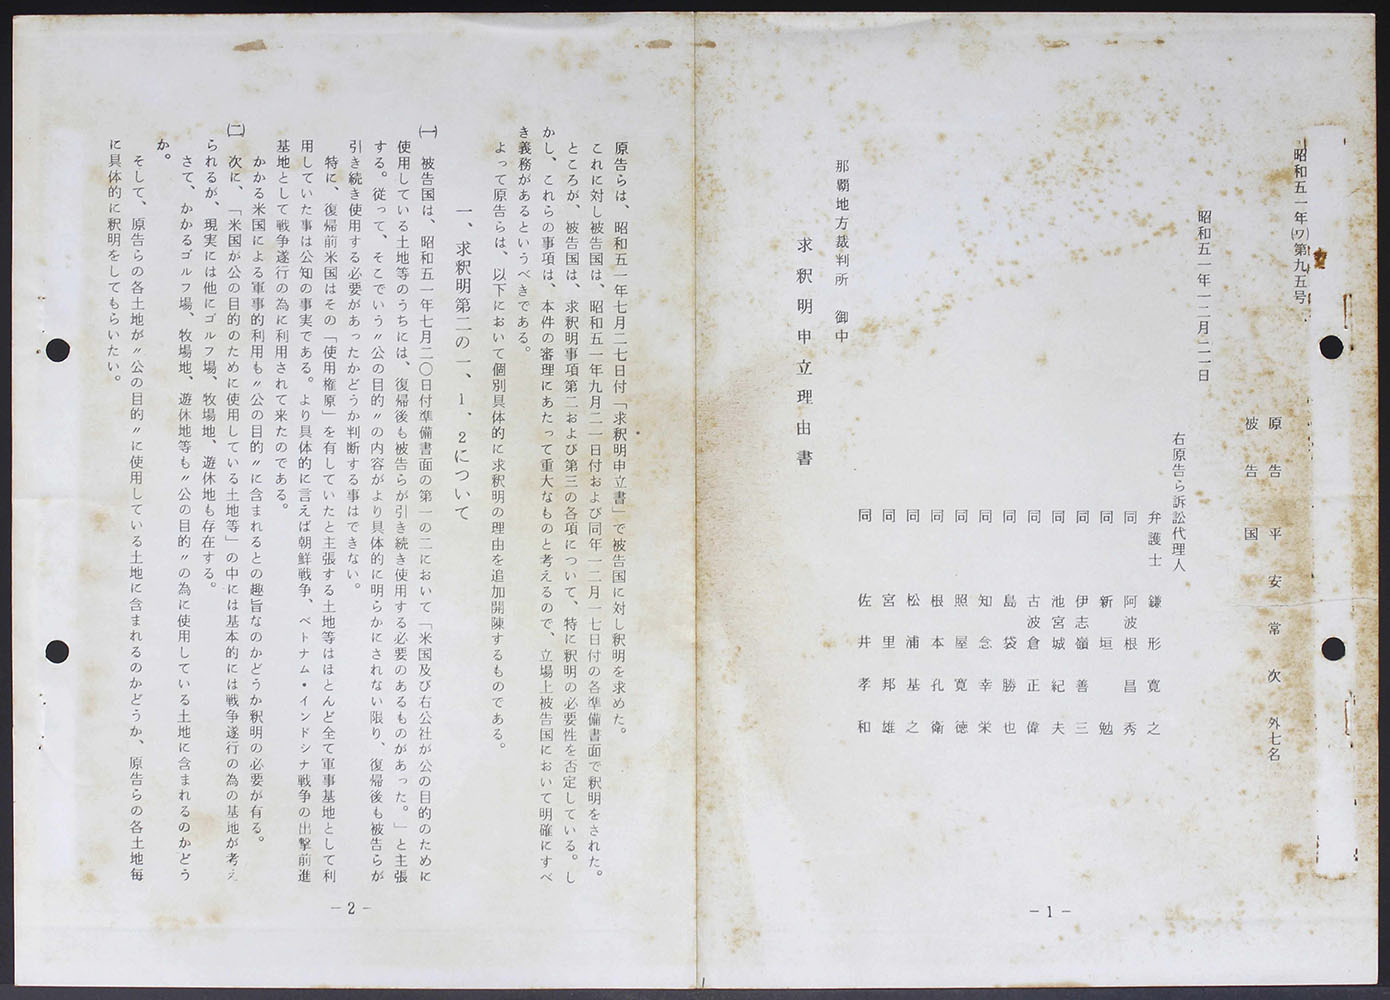 昭和五一年(ワ)第九五号
原告　平安常次　外七名
被告　国
昭和五一年一二月二二日
右原告ら訴訟代理人
弁護士　鎌形寛之
同　阿波根昌秀
同　新垣勉
同　伊志嶺善三
同　池宮城紀夫
同　古波倉正偉
同　島袋勝也
同　知念幸栄
同　照屋寛徳
同　根本孔衛
同　松浦基之
同　宮里邦雄
同　佐井孝和
那覇地方裁判所　御中
求釈明申立理由書
－1－
原告らは、昭和五一年七月二七日付「求釈明申立書」で被告国に対し釈明を求めた。
これに対し被告国は、昭和五一年九月二一日付および同年一二月一七日付の各準備書面で釈明をされた。
ところが、被告国は、求釈明事項第二および第三の各項について、特に釈明の必要性を否定している。し
かし、これらの事項は、本件の審理にあたって重大なものと考えるので、立場上被告国において明確にすべ
き義務があるというべきである。
よって原告らは、以下において個別具体的に求釈明の理由を追加開陳するものである。
一、求釈明第二の一、1、2について
(一)　被告国は、昭和五一年七月二〇日付準備書面の第一の二において「米国及び右公社が公の目的のために
使用している土地等のうちには、復帰後も被告らが引き続き使用する必要のあるものがあった。」と主張
する。従って、そこでいう〝公の目的〟の内容がより具体的に明らかにされない限り、復帰後も被告らが
引き続き使用する必要があったかどうか判断する事はできない。
特に、復帰前米国はその「使用権原」を有していたと主張する土地等はほとんど全て軍事基地として利
用していた事は公知の事実である。より具体的に言えば朝鮮戦争、ベトナム・インドシナ戦争の出撃前進
基地として戦争遂行の為に利用されて来たのである。
かかる米国による軍事的利用も〝公の目的〟に含まれるとの趣旨なのかどうか釈明の必要が有る。
(二)　次に、「米国が公の目的のために使用している土地等」の中には基本的には戦争遂行の為の基地が考え
られるが、現実には他にゴルフ場、牧場地、遊休地も存在する。
さて、かかるゴルフ場、牧場地、遊休地等も〝公の目的〟の為に使用している土地に含まれるのかどう
か。
そして、原告らの各土地が〝公の目的〟に使用している土地に含まれるのかどうか、原告らの各土地毎
に具体的に釈明をしてもらいたい。
－2－